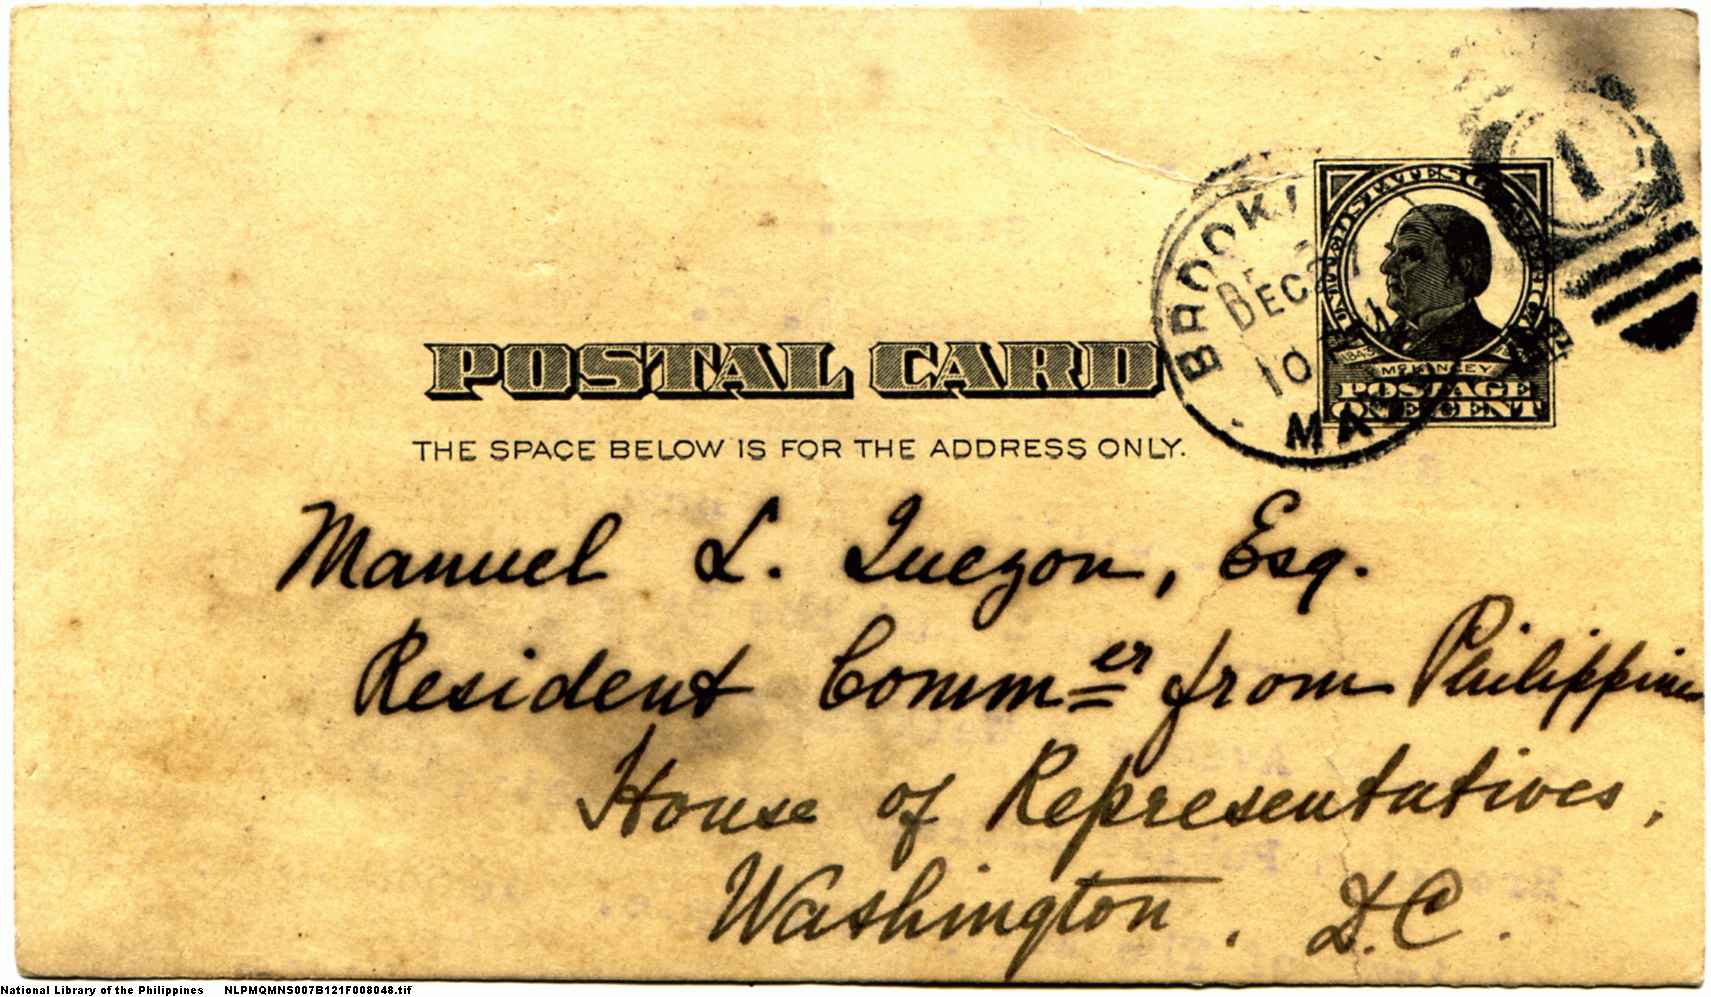 UNITED STATES OF AMERICA
1843
McKINLEY
POSTAGE
ONE CENT
DEC
10
MA
1
POSTAL CARD
THE SPACE BELOW IS FOR THE ADDRESS ONLY.
Manuel L. Quezon, Esq.
Resident Commer from Philippines
House of Representatives,
Washington, D.C.
National Library of the Philippines NLPMQMNS007B121F008048.tif